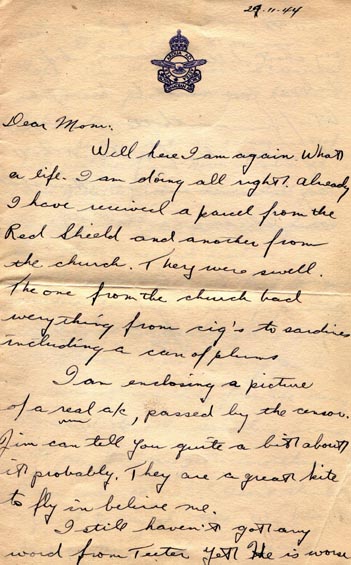 29.11.44
Dear Mom:
Well here I am again. What
a life. I am doing all right. Already
I have received a parcel from the
Red Shield and another from
the church. They were swell.
The one from the church had
everything from cig's to sardines
including a can of plums
I am enclosing a picture
of a real a/c, passed by the censor.
Jim can tell you quite a bit about
it probably. They are a great kite
to fly in believe me.
I still haven't got any
word from Teeter yet. He is worse